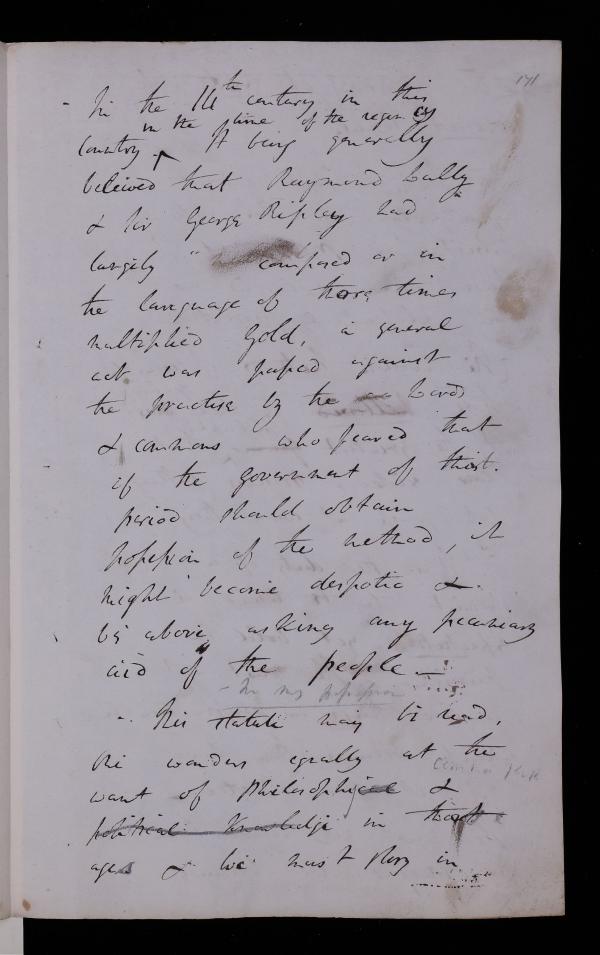 171
- In the 14th century in this
in the time of the regency
Country. It being generally
beleived that Raymond Lully
& Sir George Ripley had
largely " composed or in
the language of those times
multiplied Gold, a general
act was passed against
the practise by the Lords
& commons who feared that
if the government of that
period should obtain
possession of the method, it
might become despotic &
be above asking any pecuniary
aid of the people -
- In my possession
- This statute may be read,
One wonders equally at the
want of Philosophical &
political knowledge in that
ages & we must glory in